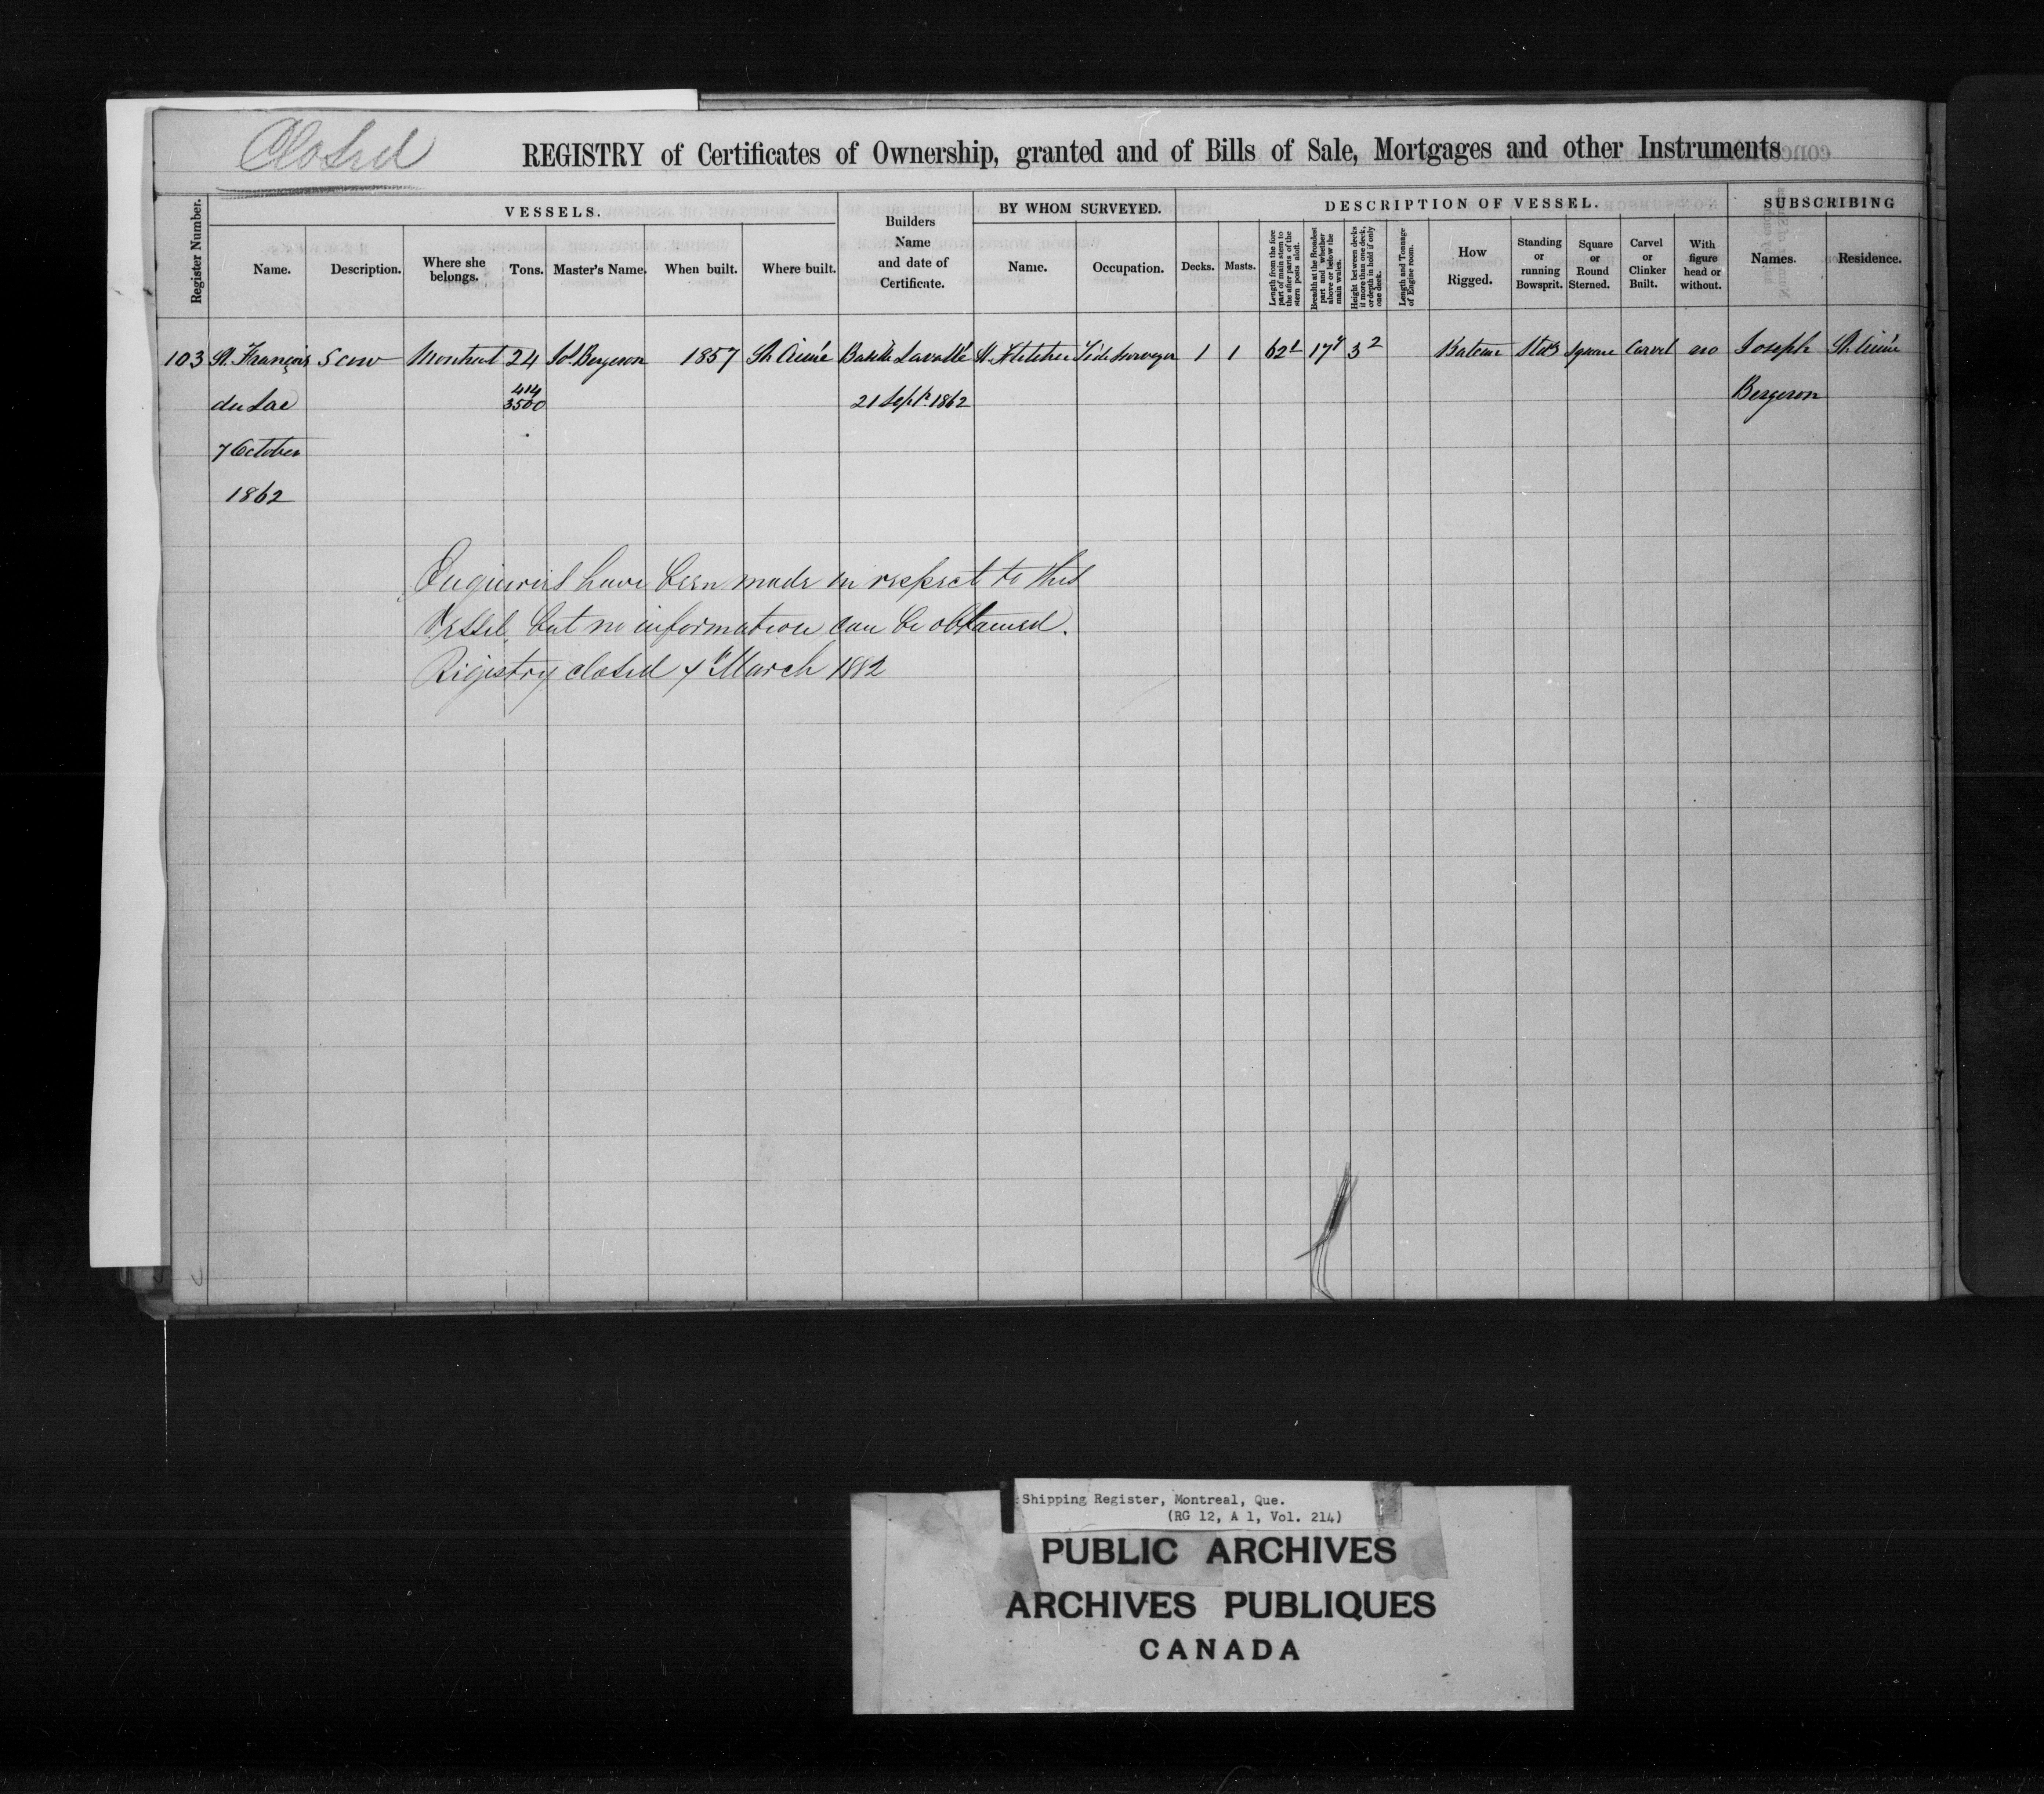 Closed
REGISTRY of Certificates of Ownership, granted and of Bills of Sale, Mortgages and other Instruments
VESSELS. BY WHOM SURVEYED. DESCRIPTION OF VESSEL. SUBSCRIBING
Register Number. Name. Description. Where she belongs. Tons. Master's Name. When built. Where built. Builders Name and date of Certificate. Name. Occupation. Decks. Masts. Length from the fore part of main stem to the after parts of the stern posts aloft. Breadth at the Broadest part and whether above or below the main wales. Height between decks if more than one deck, or depth in hold if only one deck. Length and Tonnage of Engine room. How Rigged. Standing or running Bowsprit. Square or Round Sterned. Carvel or Clinker Built. With figure head or without. Names. Residence.
103 St. François Scow Montreal 24 Jos. Bergeron 1857 St. Aimé Basile Lavallé Fletcher Tide Surveyor 1 1 62 1 17 3 2 Bateau Stdg Square Carvel no Joseph St. Aimé
du Lac 414/3500 21 Sept. 1862 Bergeron
7 October
1862
Enquiries have been made in respect to this
Vessel but no information can be obtained.
Registry closed March 1882
Shipping Register, Montreal, Que.
(RG 12, A 1, Vol. 214)
PUBLIC ARCHIVES
ARCHIVES PUBLIQUES
CANADA